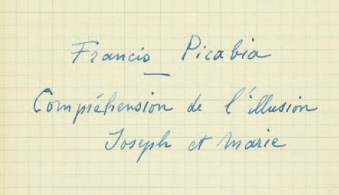 Francis Picabia
Compréhension de l'illusion
Joseph et Marie